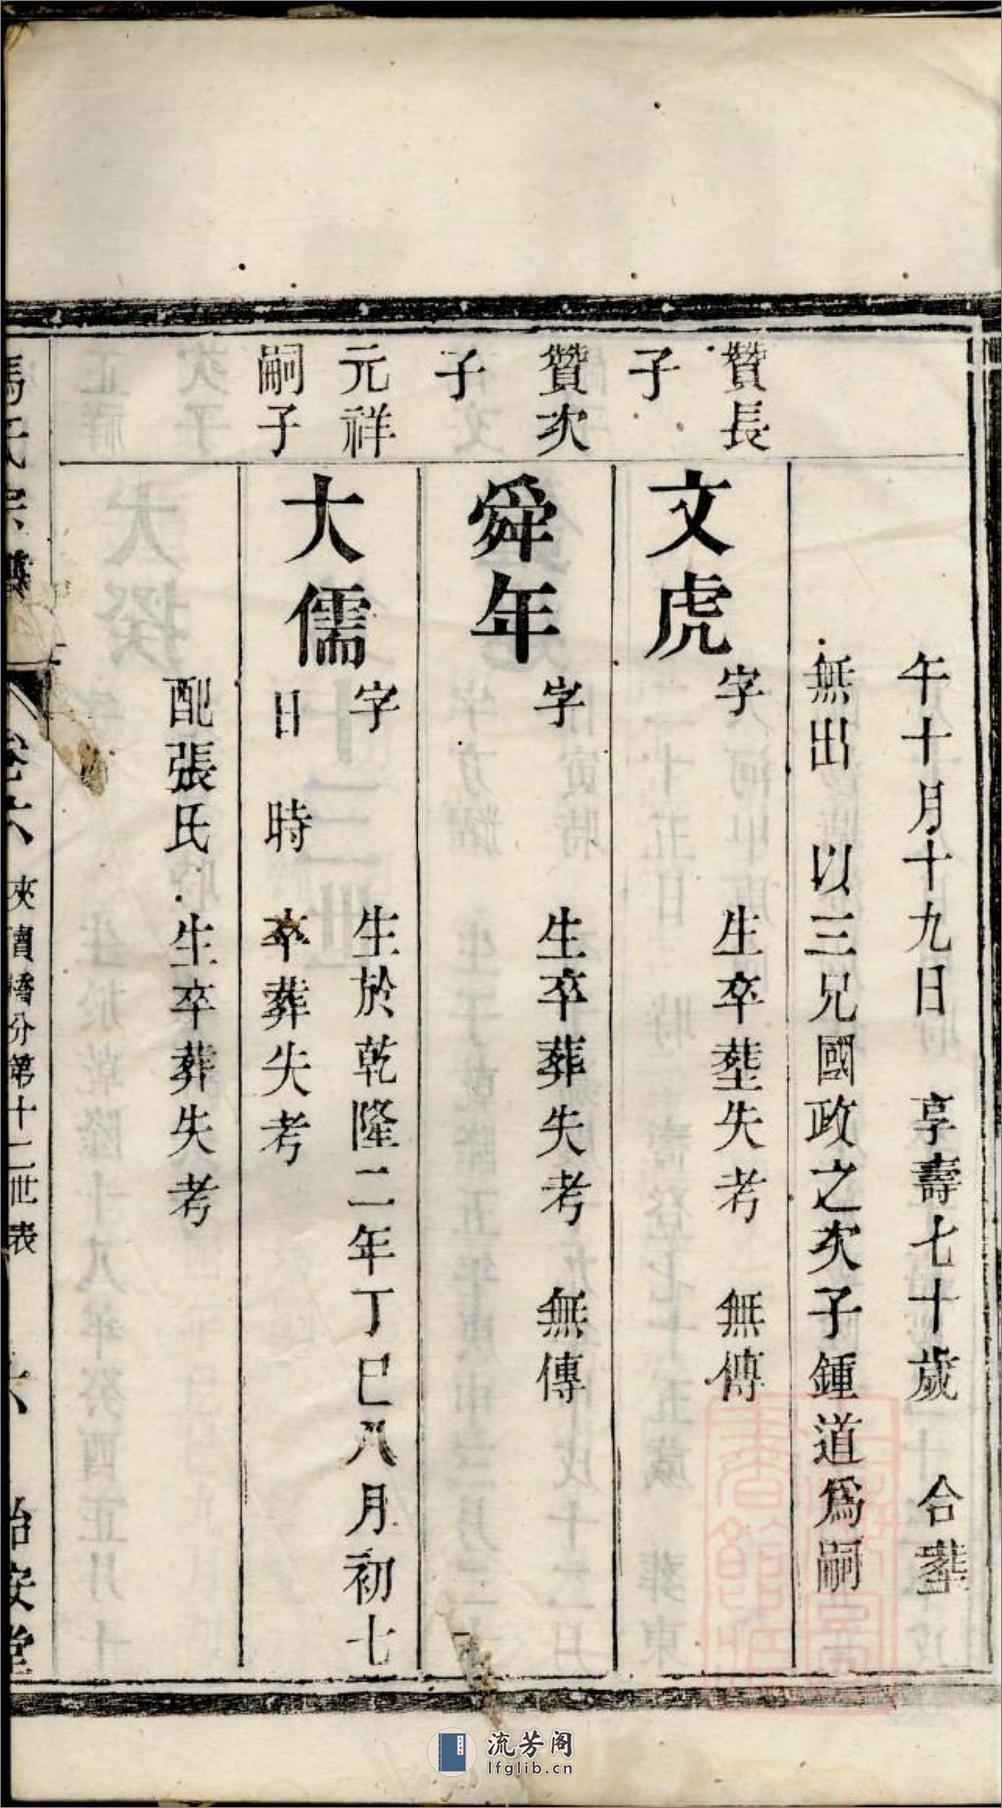 午十月十九日 享壽七十歲 合塟
無出 以三兄國政之次子鍾道爲嗣
贊長
子
文虎
字 生卒塟失考 無傳
贊次
子
舜年
字 生卒葬失考 無傳
元祥
嗣子
大儒
字 生於乾隆二年丁巳八月初七
日 時 卒葬失考
配張氏 生卒葬失考
馮氏宗譜
卷六 夾瀆橋分第十二世表 六 怡安堂
流芳阁
lfglib.cn